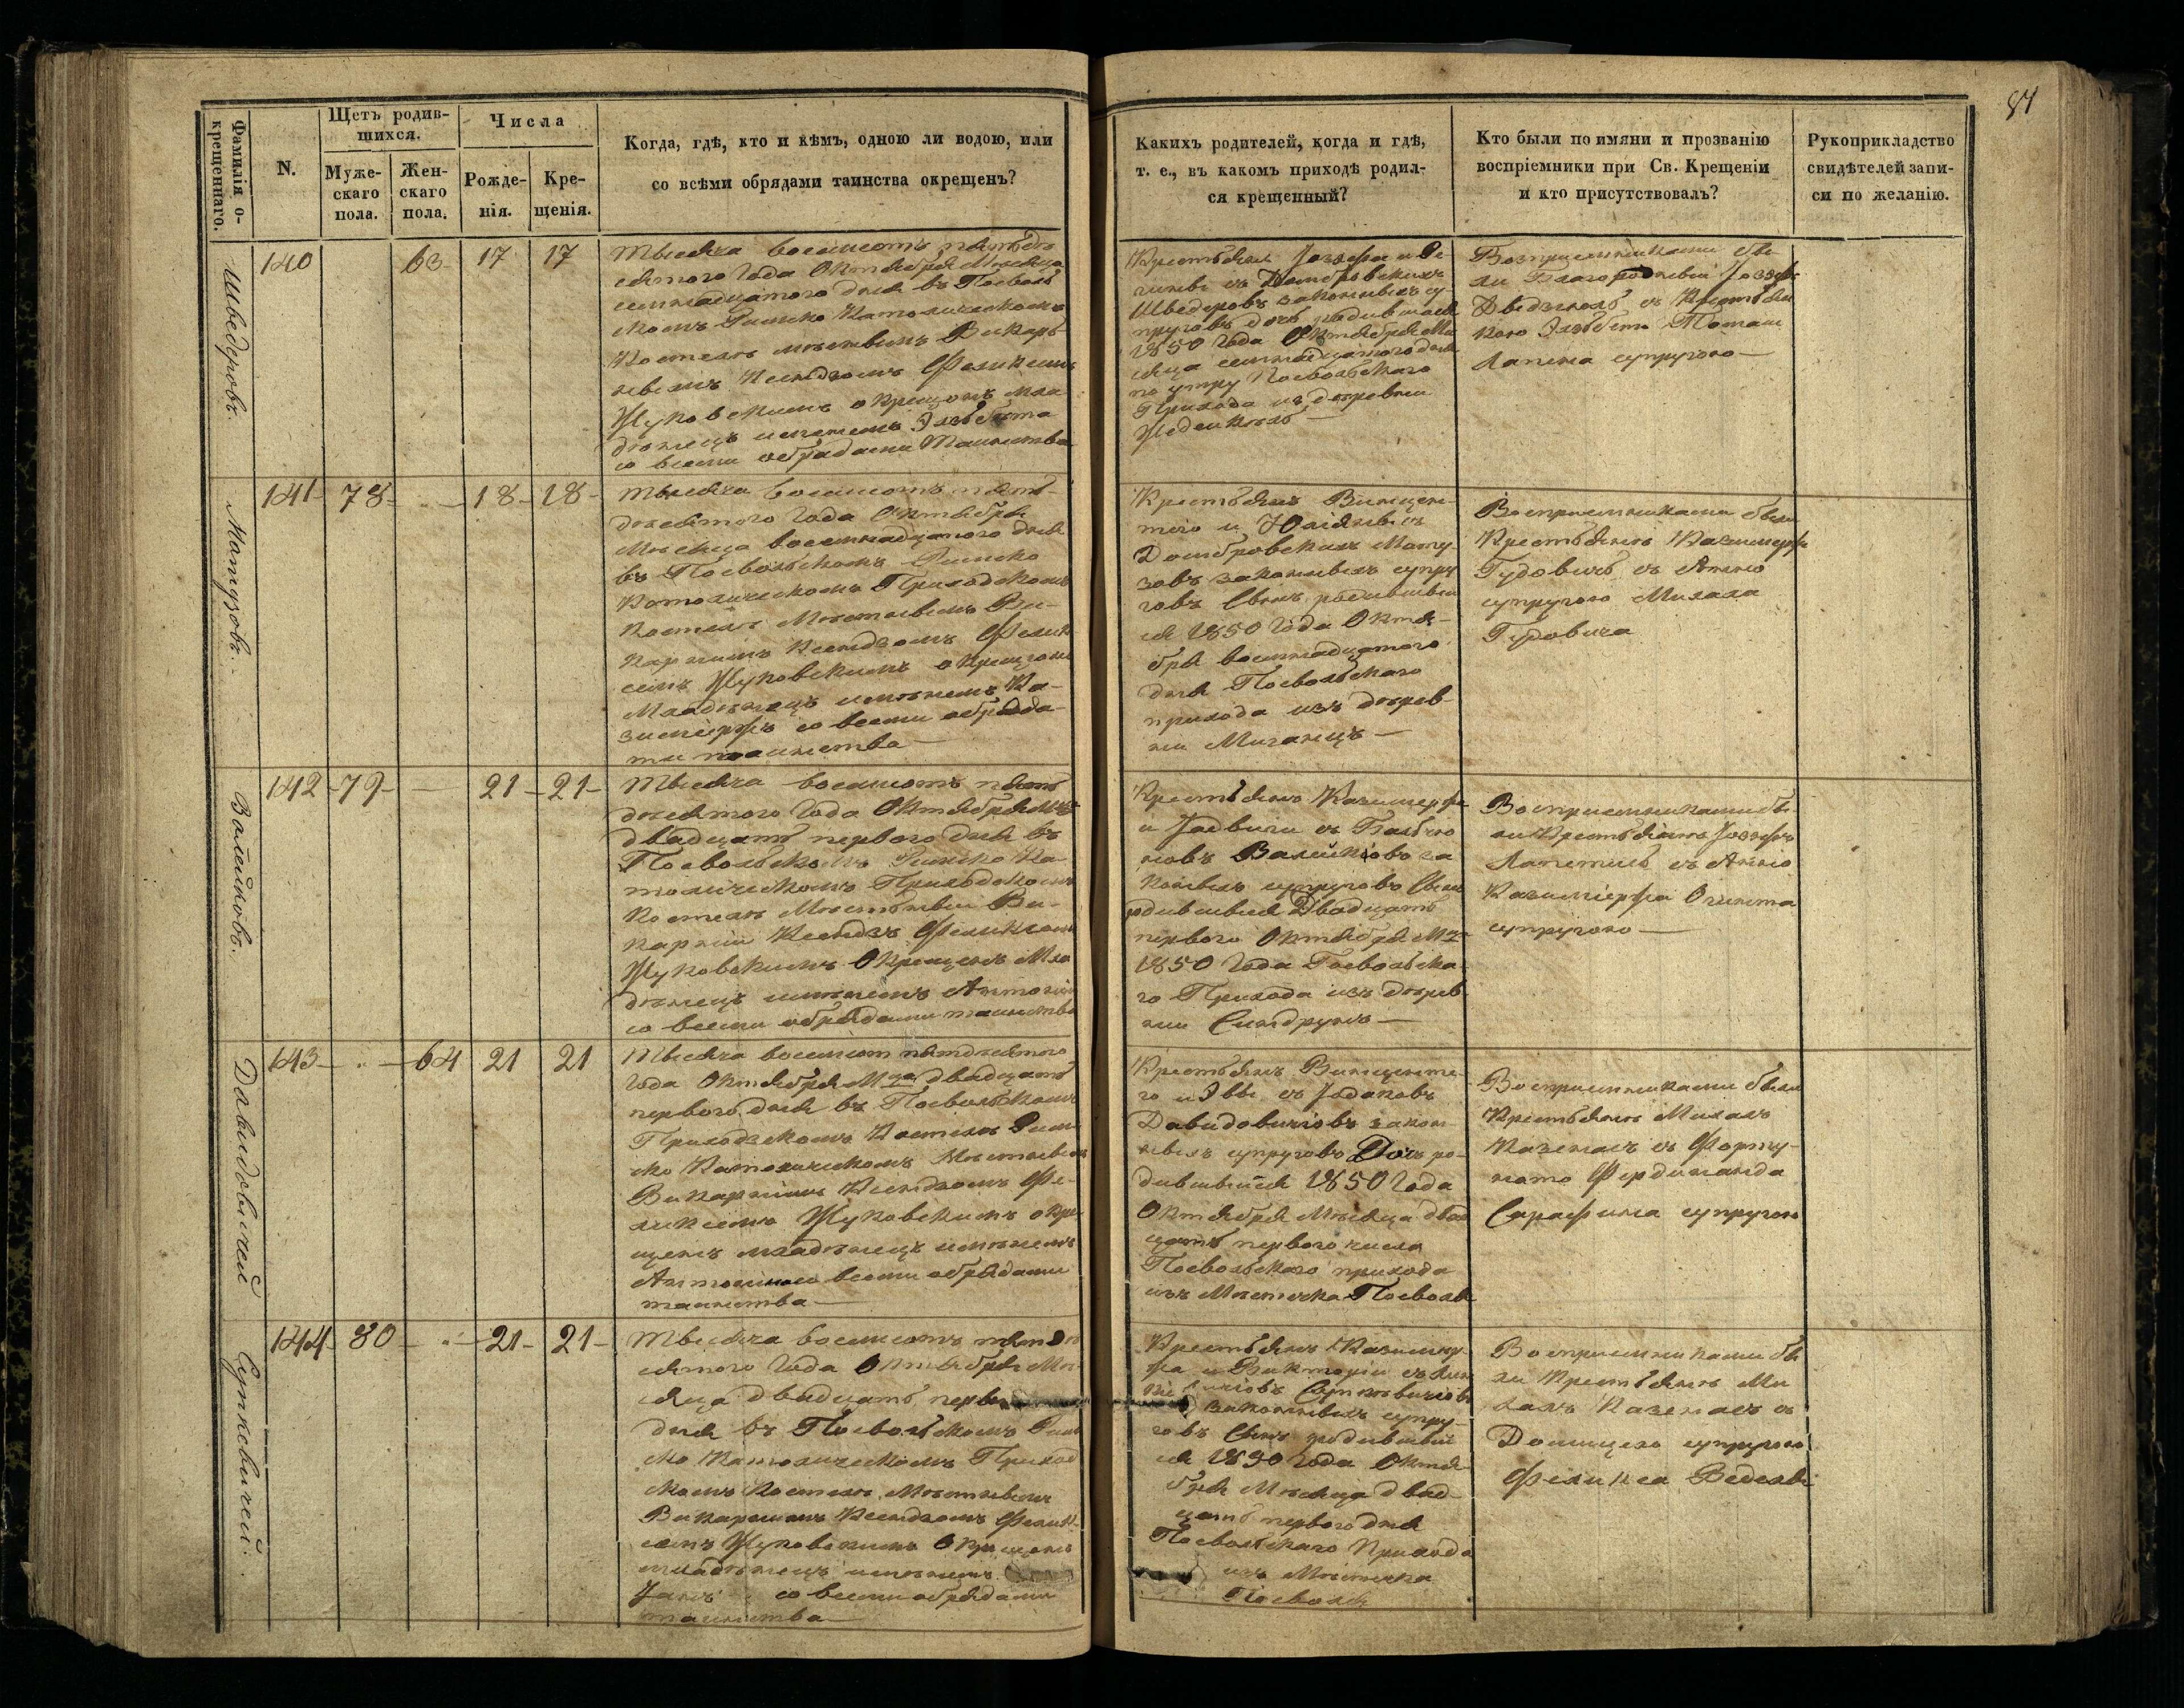 81
Фамилія о-
крещеннаго.
N.
Щетъ родив-
шихся.
Муже-
скаго
пола.
Жен-
скаго
пола.
Числа
Рожде-
нія.
Кре-
щенія.
Когда, гдѣ, кто и кѣмъ, одною ли водою, или
со всѣми обрядами таинства окрещенъ?
Какихъ родителей, когда и гдѣ,
т. е., въ какомъ приходѣ родил-
ся крещенный?
Кто были по имяни и прозванію
воспріемники при Св. Крещеніи
и кто присутствовалъ?
Рукоприкладство
свидѣтелей запи-
си по желанію.
Шведеровъ
140 63 17 17
Тысяча восемсотъ пятьде
сятого Года Октября Мѣсяца
семнадцатого дня въ Посволь
скомъ Римско Католическомъ
Костелѣ мѣстнымъ Викарь
нымъ Ксендзомъ Феликсомъ
Жуковскимъ окрещонъ мла
дѣнецъ именемъ Элзбѣта
со всеми обрядами Таинства
Крестьянъ Іозефа и Ре
гины съ Домбровскихъ
Шведеровъ законныхъ су
пруговъ дочь родившаяся
1850 Года Октября Мѣ
сяца семнадцатого дня
по утру Посвольскаго
Прихода изъ деревни
Воспріемниками бы
ли Благородный Іозефъ
съ Крестьян
кою Элзбѣтою Томаша
Лапена супругою
Матузовъ
141 78 18 18
Тысяча восемсотъ пять
десятого Года Октября
Мѣсяца восемнадцатого дня
въ Посвольскомъ Римско
Католическомъ Приходскомъ
Костелѣ Мѣстнымъ Ви-
карнимъ Ксендзомъ Фелик
сомъ Жуковскимъ окрещонъ
Младѣнецъ именемъ Ка-
зиміръ со всеми обряда-
ми таинства
Крестьянъ Винцен-
тего и Юліянны съ
Домбровскихъ Мату-
зовъ законныхъ супру
говъ Сынъ родившый
ся 1850 Года Октя-
бря восемнадцатого
дня Посвольскаго
прихода изъ дерев-
ни Миганцъ
Воспріемниками были
Крестьянѣ Казимеръ
Гудовичъ съ Анною
супругою Михала
Гудовича
Валейковъ.
142 79 21 21
Тысяча восемсотъ пять
десятого Года Октября Мца
двадцать первого дня въ
Посвольскомъ Римско Ка-
толическомъ Приходскомъ
Костелѣ Мѣстный Ви-
карній Ксендзъ Феликсомъ
Жуковскимъ Окрещенъ Мла
дѣнецъ именемъ Антоній
со всеми обрядами таинства
Крестьянъ Казимера
и Ядвиги съ Бальчю
новъ Валейковъ за
конныхъ супруговъ Сынъ
родившыйся Двадцать
первого Октября Мца
1850 Года Посвольска
го Прихода изъ дерев
ни Синдрунъ
Воспріемниками бы
ли Крестьянѣ Іозефъ
съ Анною
Казиміера
супругою
Давидовичей
143 64 21 21
Тысяча восемсот пятдесятого
Года Октября Мца двадцать
первого дня въ Посвольскомъ
Приходзскомъ Костелѣ Рим
ско Католическомъ Мѣстнымъ
Викарнимъ Ксендзомъ Фе-
ликсемъ Жуковскимъ окре
щенъ младѣнецъ именемъ
Антонина со всеми обрядами
таинства
Крестьянъ Винценте-
го и Эвы съ Іодаковъ
Давидовичовъ закон
ныхъ супруговъ Дочь ро-
дившыйся 1850 Года
Октября Мѣсяца двад
цать первого числа
Посвольскаго прихода
изъ Мѣстечка Посволя
Воспріемниками были
Крестьянѣ Михалъ
Каземасъ съ Форту-
нато Фердинанда
Сарафина супругою
Суткевичей.
144 80 21 21
Тысяча восемсотъ пятде
сятого Года Октября Мѣ-
сяца двадцать перв
дня въ Посвольскомъ Рим
ско Католическомъ Приход
скомъ Костелѣ Мѣстнымъ
Викарнимъ Ксендзомъ Феликс
емъ Жуковскимъ Окрещенъ
младѣнецъ именемъ
Янъ со всеми обрядами
таинства
Крестьянъ Казими
ра и Викторіи съ
Суткевичовъ
законныхъ супру-
говъ Сынъ родившый
ся 1850 Года Октя-
бря Мѣсяца двад-
цать первого дня
Посвольскаго Прихода
изъ Мѣстечка
Посволя
Воспріемниками бы
ли Крестьянѣ Ми
халъ Каземасъ съ
Доминцею супругою
Феликса